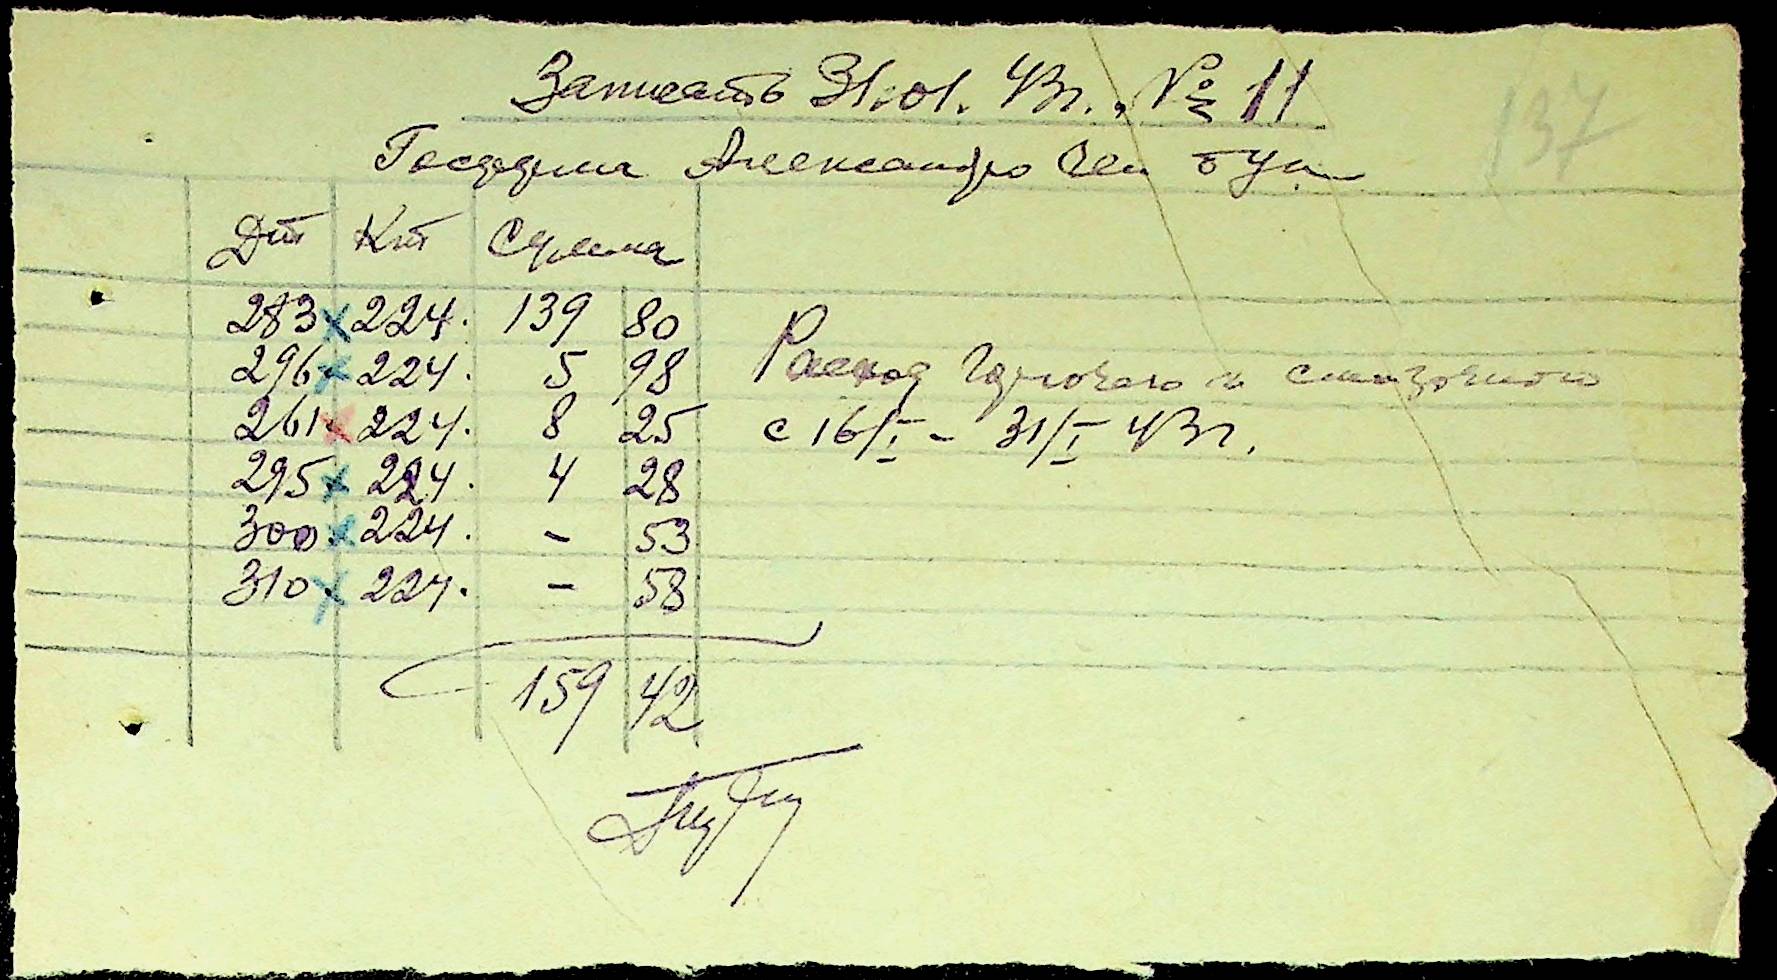 Записать 31.01.43г., № 11
137
Александро
Дт Кт Сумма
283 х 224. 139 80
296 х 224. 5 98
261 х 224. 8 25
295 х 224. 4 28
300 х 224. - 53
310 х 224. - 58
159 42
Расход горючего и смазочного
с 16/I - 31/I 43г.